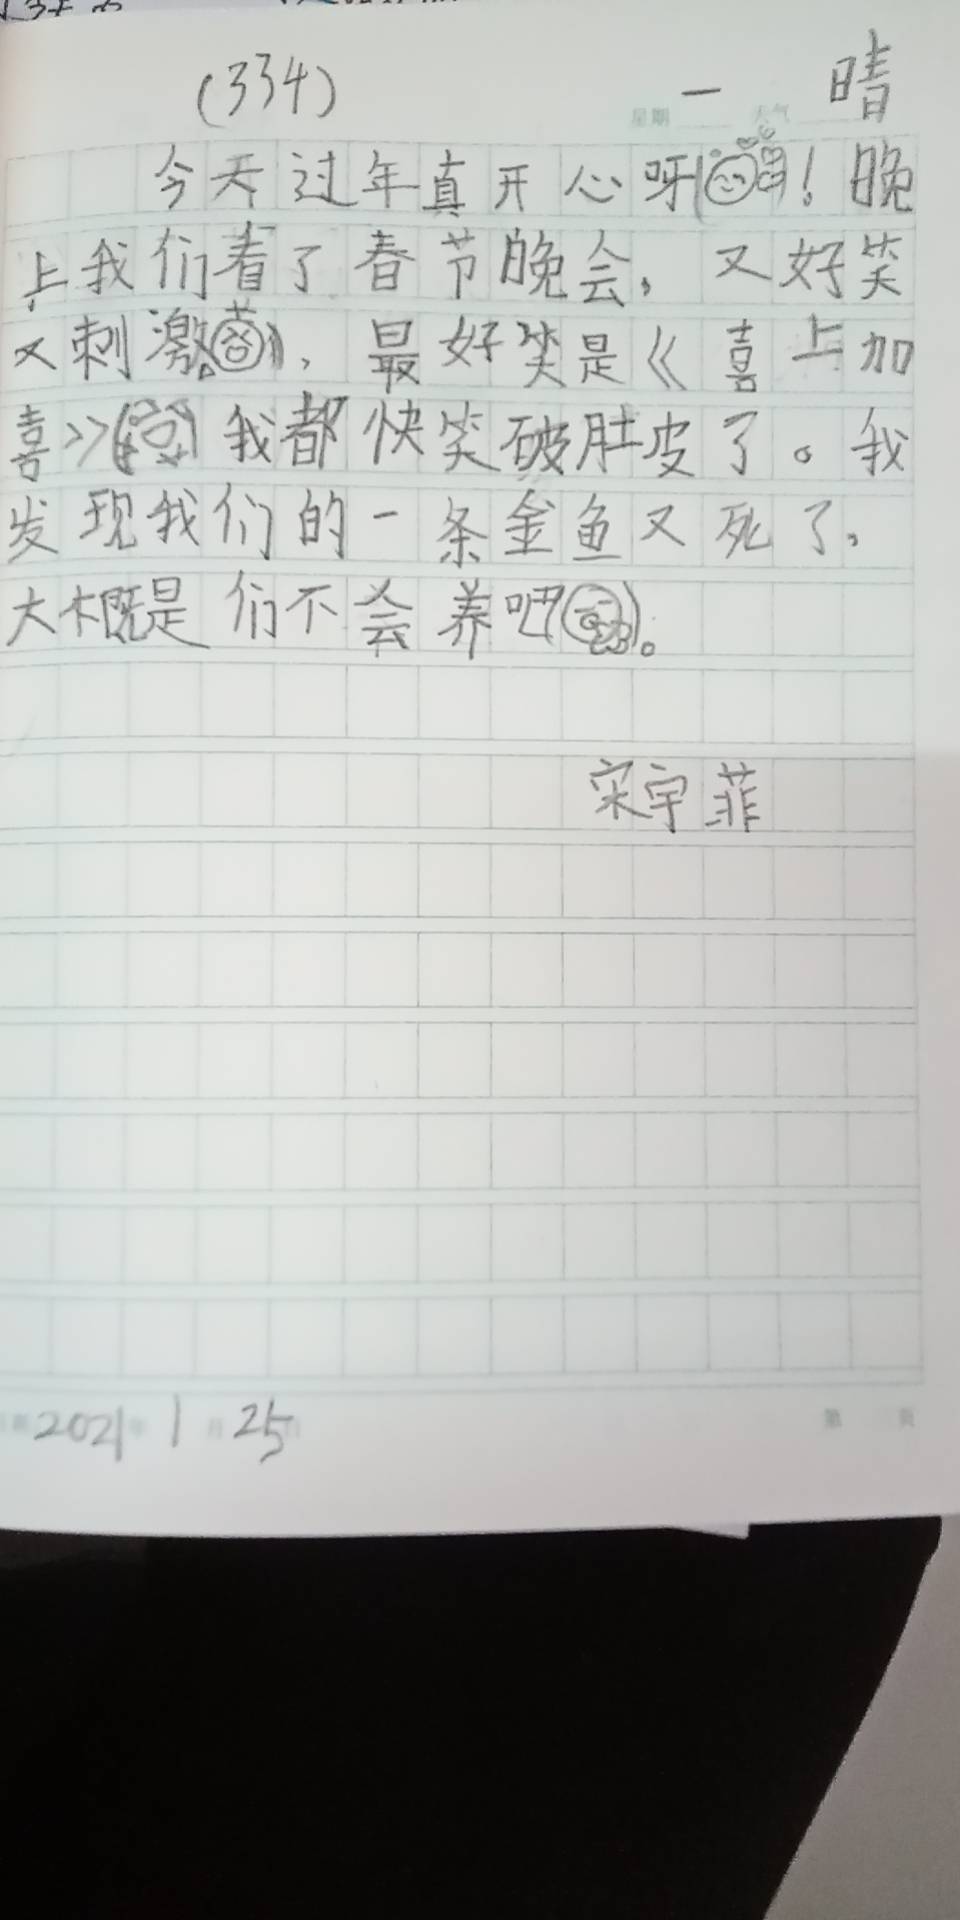 (334)
星期 一 天气 晴
今天过年真开心呀( )！晚
上我们看了春节晚会，又好笑
又刺激( )，最好笑是《喜上加
喜》( )我都快笑破肚皮了。我
发现我们的一条金鱼又死了，
大概是们不会养吧( )。
宋宇菲
2021年1月25日 第 页